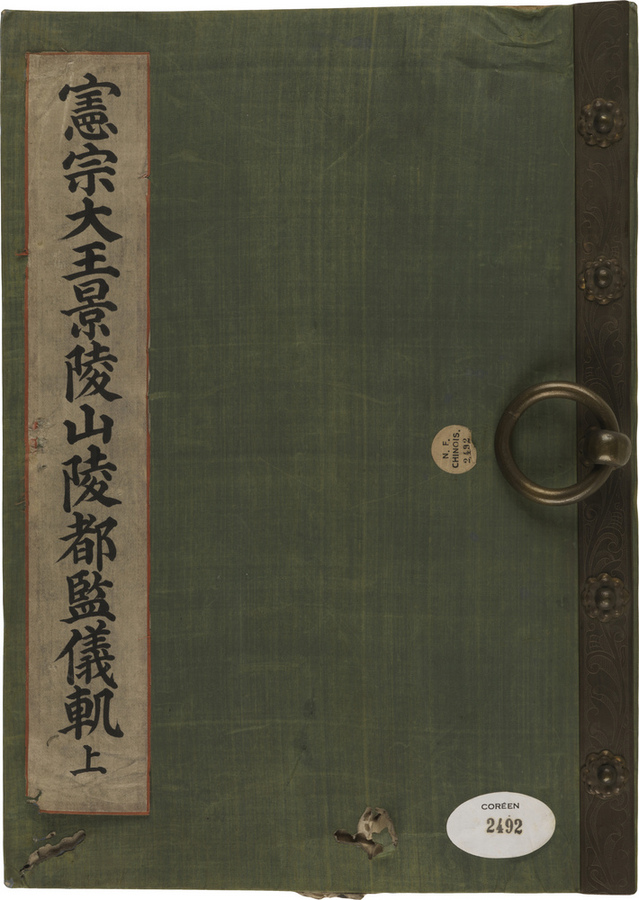 憲宗大王景陵山陵都監儀軌上
N. F.
CHINOIS.
2492
CORÉEN
2492